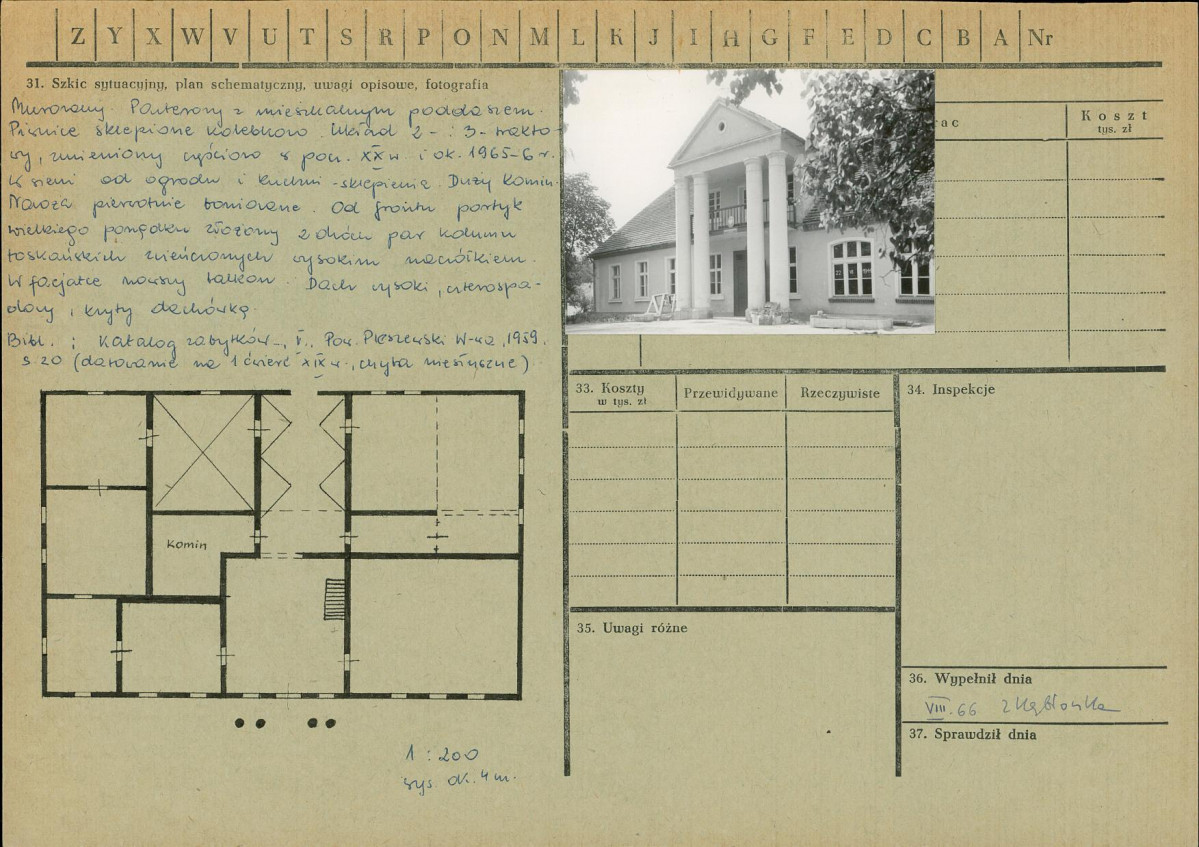 Z Y X W V U T S R P O N M L K J I H G F E D C B A Nr
31. Szkic sytuacyjny, plan schematyczny, uwagi opisowe, fotografia
Murowany. Parterowy z mieszkalnym poddaszem.
Piwnice sklepione kolebkowo. Układ 2- i 3- trakto-
wy, zmieniony częściowo w pocz. XX w i ok. 1965-6 r.
W sieni od ogrodu i kuchni - sklepienia. Duży komin.
Naroża pierwotnie boniowane. Od frontu portyk
wielkiego porządku złożony z dwóch par kolumn
toskańskich zwieńczonych wysokim naczółkiem.
W facjatce nowszy balkon. Dach wysoki, czterospa-
dowy, kryty dachówką.
Bibl. : Katalog zabytków, V., Pow. Pleszewski W-wa, 1959,
s. 20 (datowanie na 1 ćwierć XIX w., chyba niesłuszne)
Komin
1 : 200
wys. ok. 4 m.
rac
Koszt
tys. zł
33. Koszty
w tys. zł
Przewidywane
Rzeczywiste
34. Inspekcje
35. Uwagi różne
36. Wypełnił dnia
VIII. 66
37. Sprawdził dnia